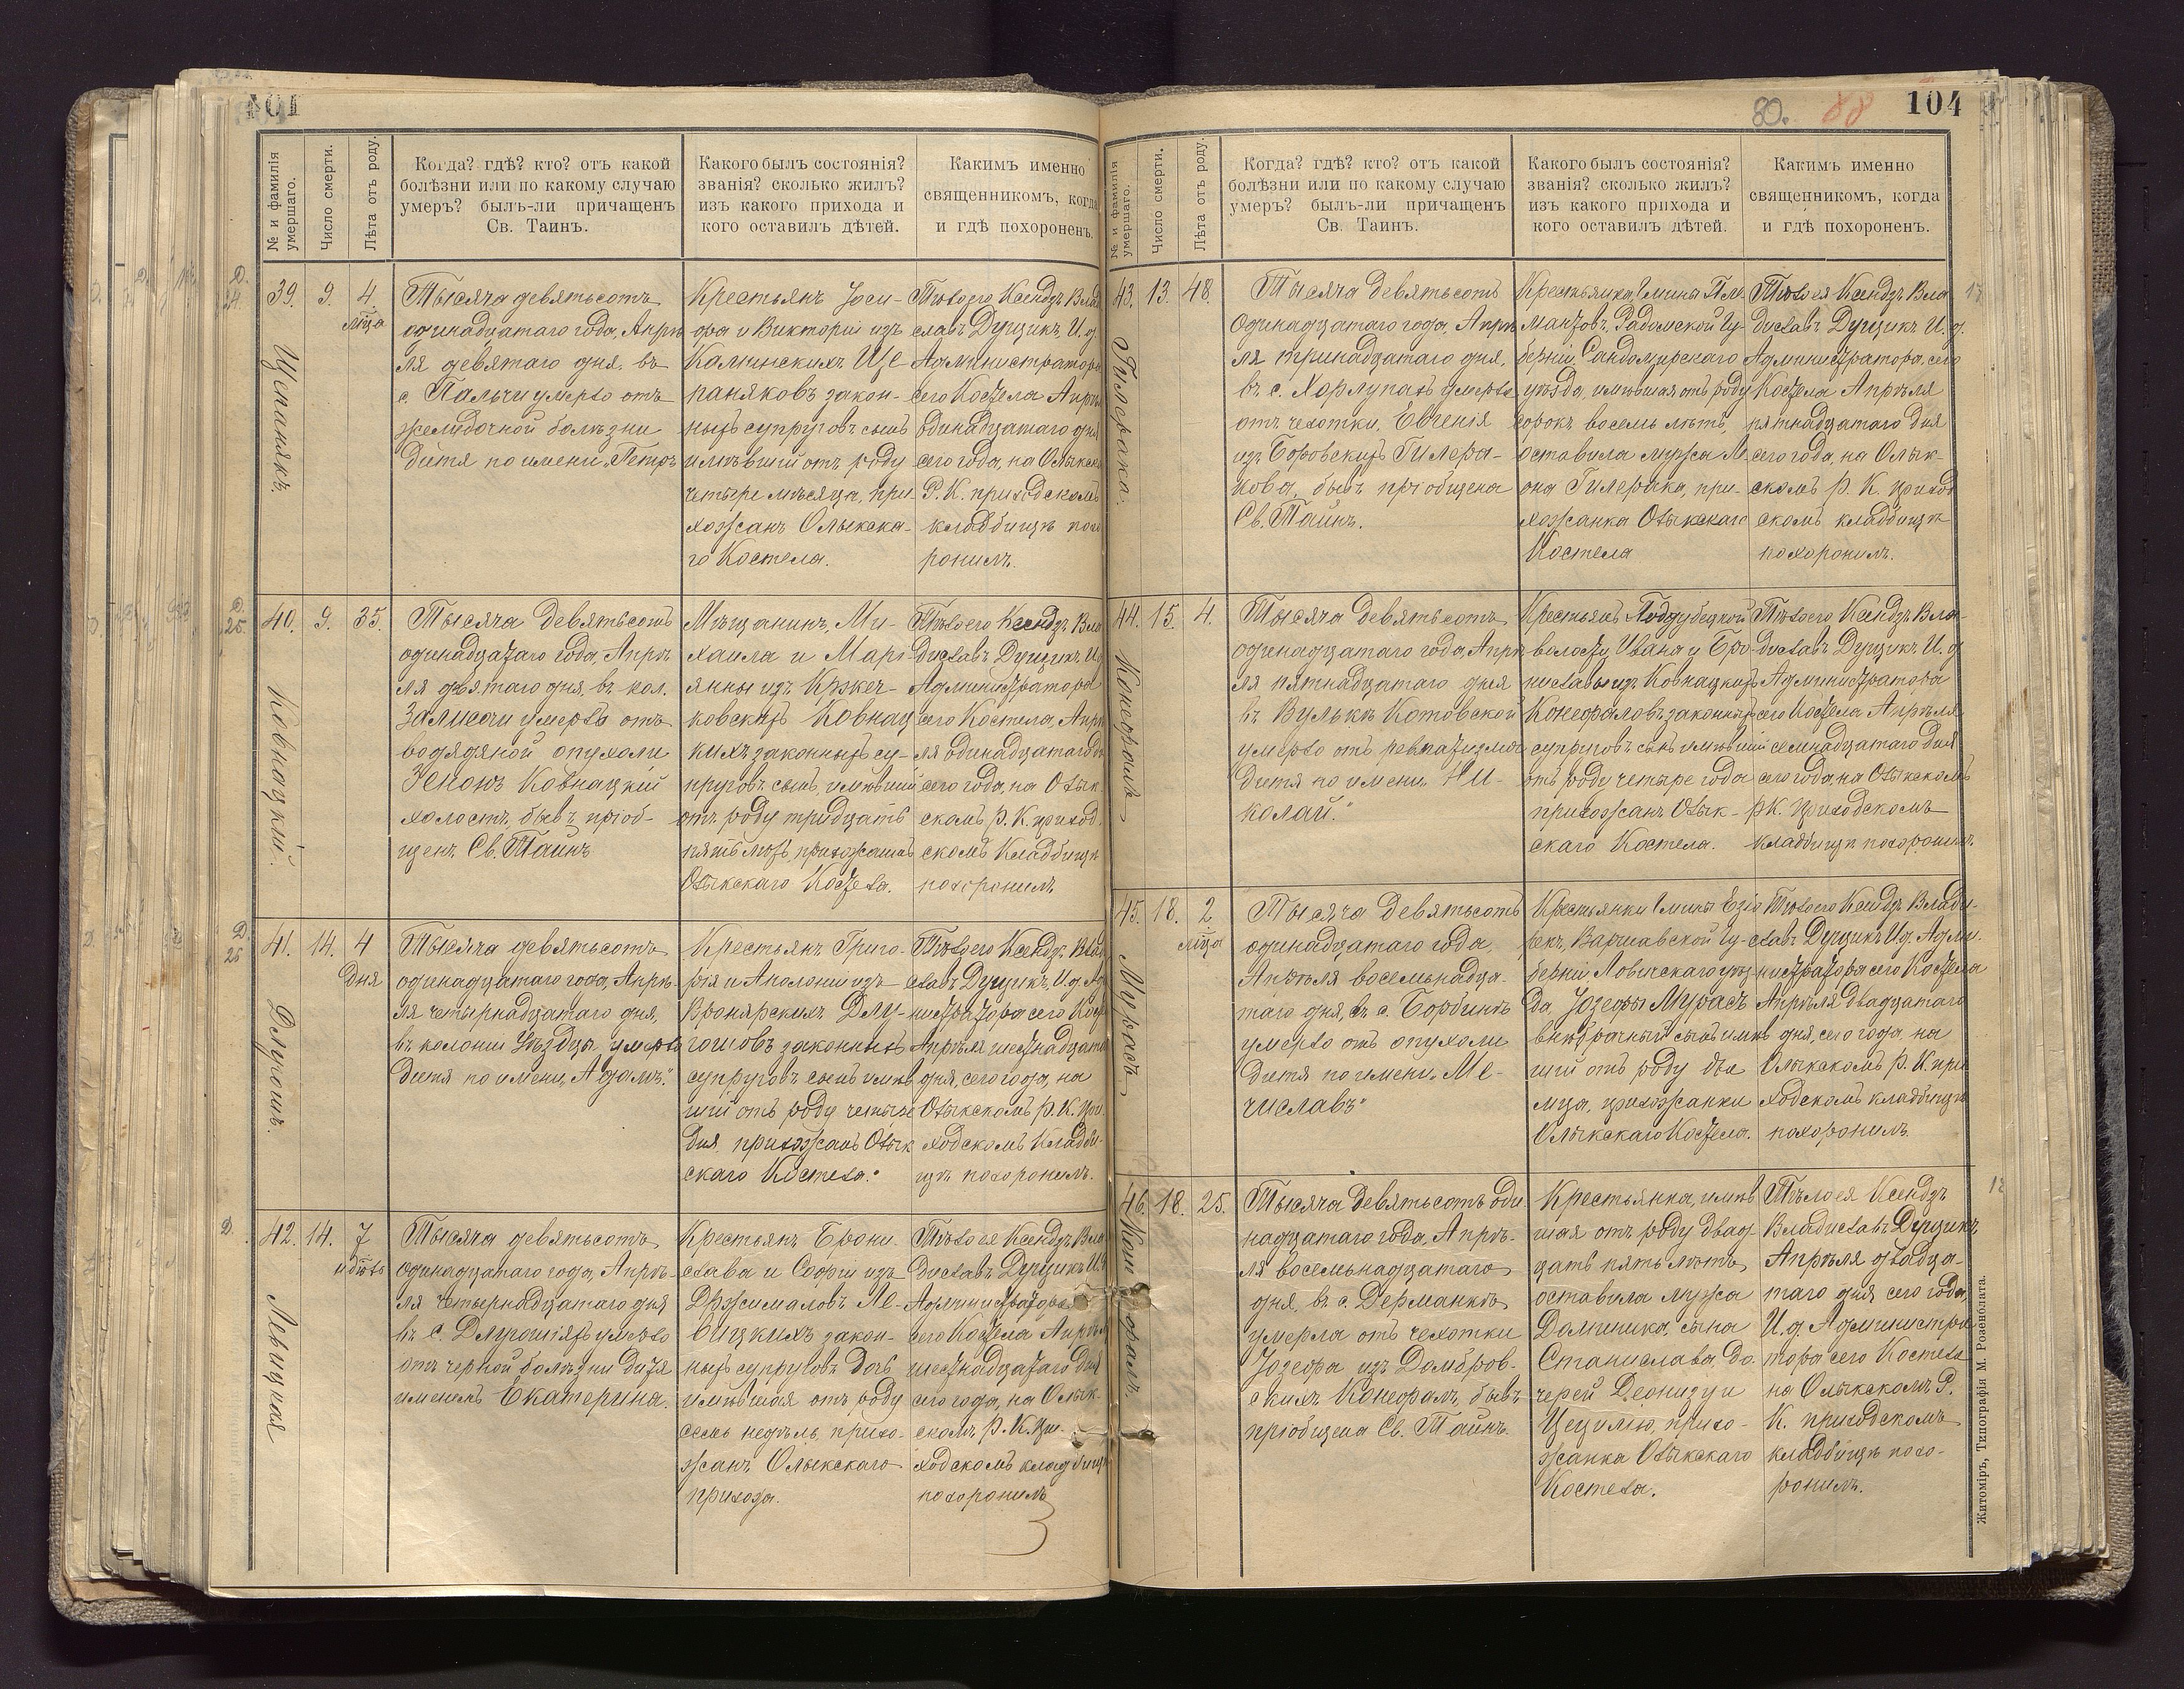 104
80.
88
№ и фамилія умершаго.
Число смерти.
Лѣта отъ роду.
Когда? гдѣ? кто? отъ какой
болѣзни или по какому случаю
умеръ? былъ-ли причащенъ
Св. Таинъ.
Какого былъ состоянія?
званія? сколько жилъ?
изъ какого прихода и
кого оставилъ дѣтей.
Какимъ именно
священникомъ, когда
и гдѣ похороненъ.
39.
Щепанякъ.
9.
4.
м̃ца
Тысяча девятьсотъ
одинадцатаго года, Апрѣ
ля девятаго дня, въ
с. Пальчи умерло отъ
желудочной болѣзни
дитя по имени „Петръ
Крестьянъ Јоси-
фа и Викторіи изъ
Калинскихъ Ще
паняковъ закон-
ныхъ супруговъ сынъ
имѣвшій отъ роду
четыре мѣсяца, при-
хожанъ Олыкска-
го Костела.
Тѣло его Ксендзъ Влади
славъ Дущикъ, И. д.
Администратора
сего Костела Апрѣля
одинадцатаго дня
сего года, на Олыкск
Р. К. приходскомъ
кладбищѣ похо
ронилъ.
40.
Ковнацкій.
9.
35.
Тысяча девятьсотъ
одинадцатаго года, Апрѣ
ля девятаго дня, въ кол.
Залисочи умеръ отъ
водядяной опухоли
Зенонъ Ковнацкій
холостъ, бывъ пріоб-
щенъ Св. Таинъ
Мѣщанинъ, Ми-
хаила и Марі-
янны изъ Кржеч-
ковскихъ Ковнац
кихъ законныхъ су-
пруговъ сынъ, имѣвшій
отъ роду тридцать
пять лѣтъ, прихожанъ
Олыкскаго Костела.
Тѣло его Ксендзъ Вла
диславъ Дущикъ И. д.
Администратора
сего Костела, Апрѣ
ля одинадцатаго дн
сего года, на Олык
скомъ Р. К. приход
скомъ Кладбищѣ
похоронилъ
41.
Длугошъ.
14.
4
дня
Тысяча девятьсотъ
одинадцатаго года, Апрѣ-
ля четырнадцатаго дня,
въ колоніи Уѣздцы умерло
дитя по имени „Адамъ."
Крестьянъ Григо-
рія и Аполоніи изъ
Вронярскихъ Длу-
гошовъ законныхъ
супруговъ сынъ имѣв
шій отъ роду четыре
дня, прихожанъ Олык
скаго Костела.
Тѣло его Ксендзъ Влади
славъ Дущикъ, И. д. Ад
министратора сего Кост
Апрѣля шестнадцата
дня, сего года, на
Олыкскомъ Р. К. при
ходскомъ Кладби-
щѣ похоронилъ.
42.
Левицкая
14.
7
недѣль
Тысяча девятьсотъ
одинадцатаго года, Апрѣ-
ля четырнадцатаго дня
въ с. Длугошіяхъ умерло
отъ черной болѣзни дитя
именемъ Екатерина.
Крестьянъ Брони-
слава и Софіи изъ
Држималовъ Ле-
вицкихъ закон-
ныхъ супруговъ дочь
имѣвшая отъ роду
семь недѣль, прихо-
жанъ Олыкскаго
прихода.
Тѣло ея Ксендзъ Вла
диславъ Дущикъ И. д
Администратора
сего Костела Апрѣля
шестнадцатаго дня
сего года, на Олык-
скомъ Р. К. при-
ходскомъ кладбищѣ
похоронилъ
№ и фамилія умершаго.
Число смерти.
Лѣта отъ роду.
Когда? гдѣ? кто? отъ какой
болѣзни или по какому случаю
умеръ? былъ-ли причащенъ
Св. Таинъ.
Какого былъ состоянія?
званія? сколько жилъ?
изъ какого прихода и
кого оставилъ дѣтей.
Какимъ именно
священникомъ, когда
и гдѣ похороненъ.
43.
Гилерака.
13.
48.
Тысяча девятьсотъ
одинадцатаго года, Апрѣ
ля тринадцатаго дня,
въ с. Хорлупахъ умерла
отъ чехотки, Евгенія
изъ Боровскихъ Гилера-
кова, бывъ пріобщена
Св. Таинъ.
Крестьянка, Гмины Кли
манковъ, Радомской Гу-
берніи, Сандомирскаго
уѣзда, имѣвшая отъ роду
сорокъ восемь лѣтъ,
оставила мужа Ле
она Гилерака, при-
хожанка Олыкскаго
Костела
Тѣло ея Ксендзъ Вла
диславъ Дущикъ И. д.
Администратора, сего
Костела Апрѣля
пятнадцатаго дня
сего года, на Олык-
скомъ Р. К. приход
скомъ кладбищѣ
похоронилъ.
44.
Конефалъ
15.
4.
Тысяча девятьсотъ
одинадцатаго года, Апрѣ
ля пятнадцатаго дня
въ Вулькѣ Котовской
умерло отъ ревматизма
дитя по имени „Ни-
колай."
Крестьянъ Поддубецкой
волости, Ивана и Бро-
ниславы изъ Ковнацкихъ
Конефаловъ законныхъ
супруговъ сынъ имѣвшій
отъ роду четыре года
прихожанъ Олык-
скаго Костела.
Тѣло его Ксендзъ Вла-
диславъ Дущикъ И. д.
Администратора
сего Костела Апрѣля
семнадцатаго дня
сего года, на Олыкскомъ
Р.К. Приходскомъ
кладбищѣ похоронилъ.
45.
Мурасъ
18.
2
м̃ца
Тысяча девятьсотъ
одинадцатаго года,
Апрѣля восемьнадца-
таго дня, въ с. Борбинѣ
умерло отъ опухоли
дитя по имени „Ме-
числавъ"
Крестьянки Гмины Езіо
рекъ, Варшавской Гу-
берніи Ловичскаго уѣз-
да, Јозефы Мурасъ
внѣбрачный сынъ имѣв
шій отъ роду два
м̃ца, прихожанки
Олыкскаго Костела.
Тѣло его Ксендзъ Влади-
славъ Дущикъ И.д. Адми-
нистратора сего Костела
Апрѣля двадцатаго
дня, сего года, на
Олыкскомъ Р. К. при
ходскомъ кладбищѣ
похоронилъ.
46.
Конефалъ.
18.
25.
Тысяча девятьсотъ оди
надцатаго года, Апрѣ-
ля восемьнадцатаго
дня, въ с. Дерманкѣ
умерла отъ чехотки
Јозефа изъ Домбров-
скихъ Конефалъ, бывъ
пріобщена Св. Таинъ.
Крестьянка, имѣв
шая отъ роду двад-
цать пять лѣтъ,
оставила мужа
Доминика, сына
Станислава, до-
черей Леонизу и
Цецилію, прихо-
жанка Олыкскаго
Костела.
Тѣло ея Ксендзъ
Владиславъ Дущикъ,
Апрѣля двадца-
таго дня сего года,
И. д. Администра
тора сего Костела
на Олыкскомъ Р.
К. приходскомъ
кладбищѣ похо-
ронилъ.
Житоміръ, Типографія М. Розенблата.